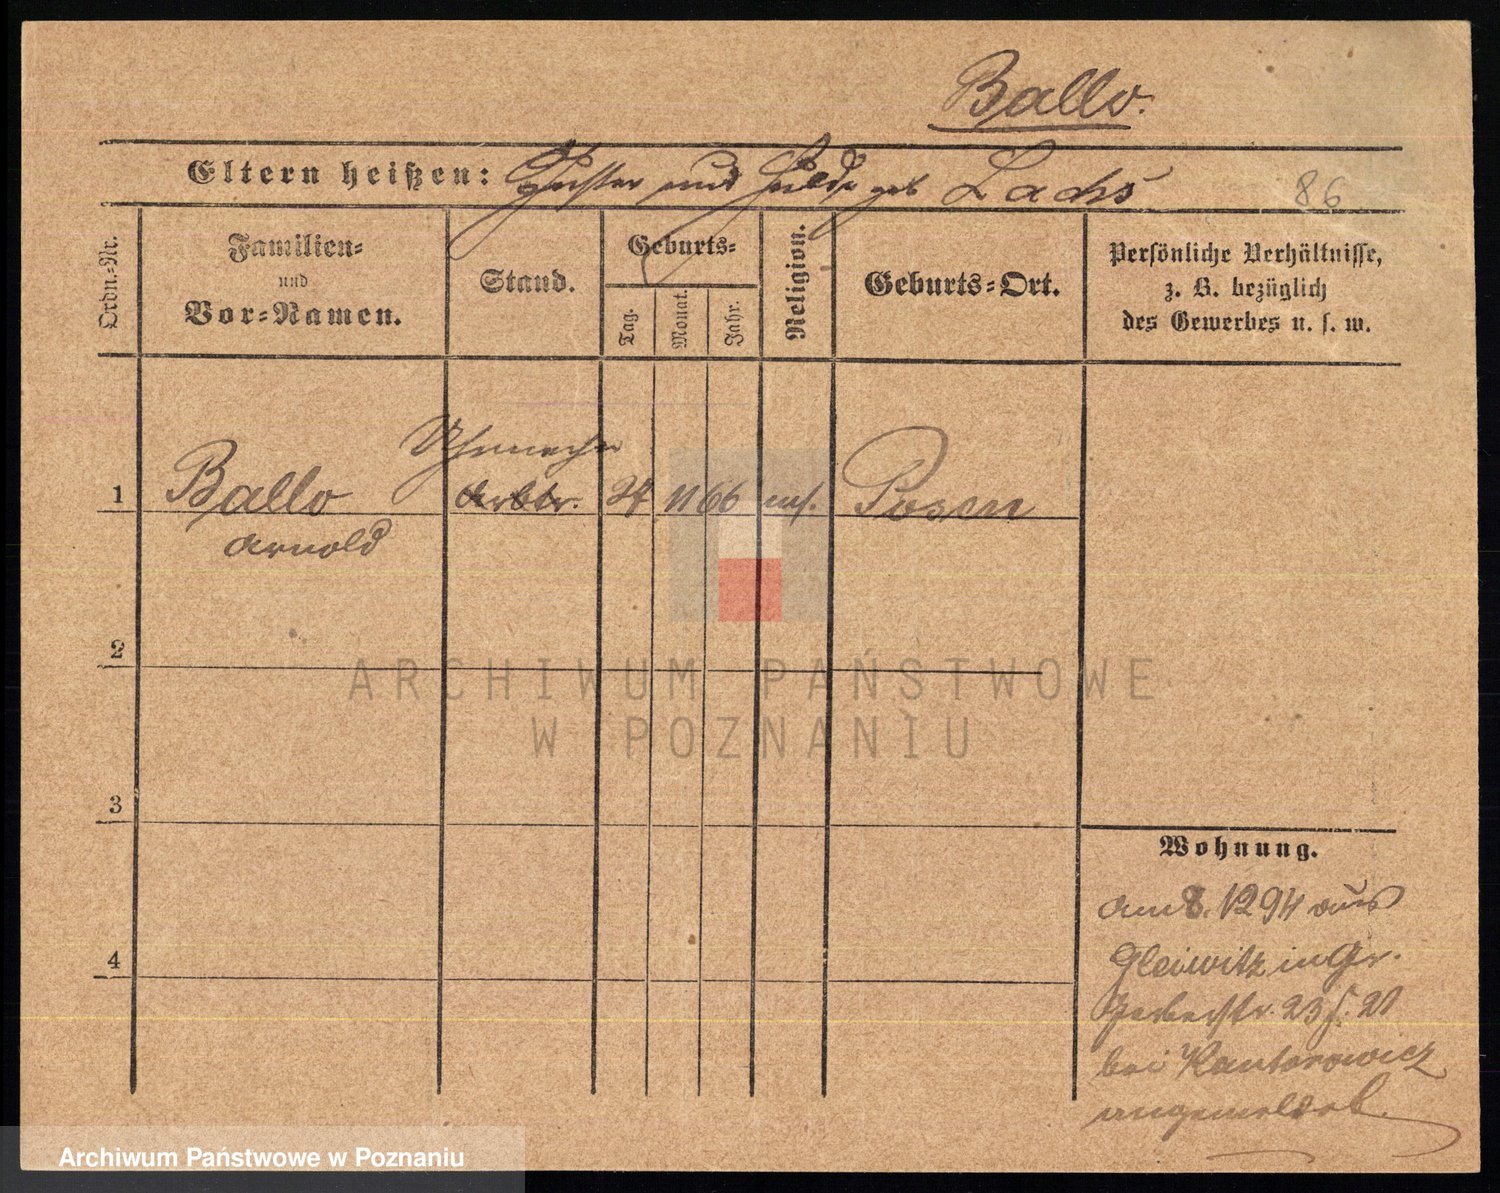 Ballo.
Eltern heißen: Gustav und Hulda geb Lachs
86
Ordn.-Nr.
Familien-
und
Vor-Namen.
Stand.
Geburts-
Tag.
Monat.
Jahr.
Religion.
Geburts-Ort.
Persönliche Verhältnisse,
z. B. bezüglich
des Gewerbes u. s. w.
Uhrmacher
1 Ballo Arbtr. 11 66 mos. Posen
Arnold
2
3
4
ARCHIWUM PAŃSTWOWE
W POZNANIU
Wohnung.
am 8. 12 94 aus
Gleiwitz in Gr.
Gerberstr. 23
bei Kantorowicz
angemeldet.
Archiwum Państwowe w Poznaniu